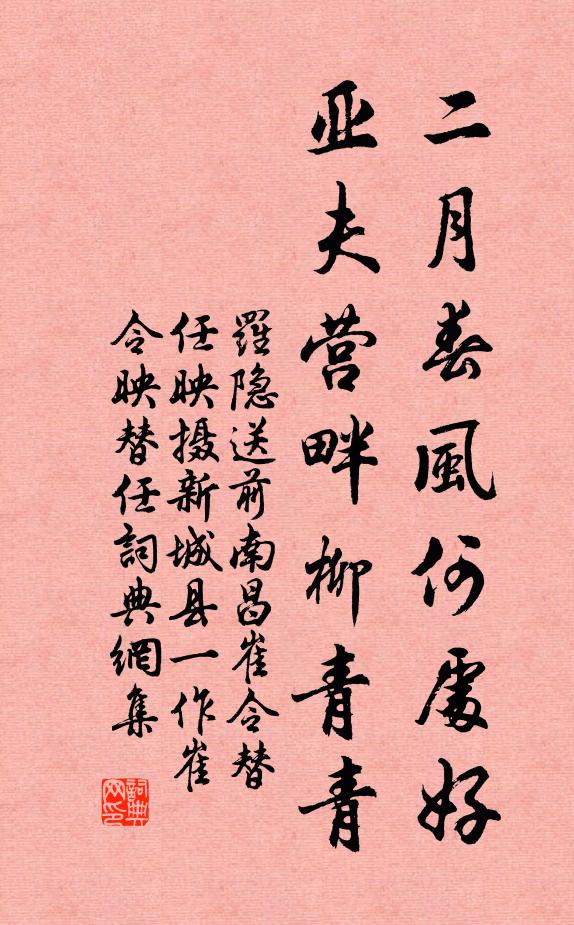 二月春風何處好
亚夫营畔柳青青
羅隐送前南昌崔令替
任映摄新城县一作崔
令映替任詞典網集
詞典网印